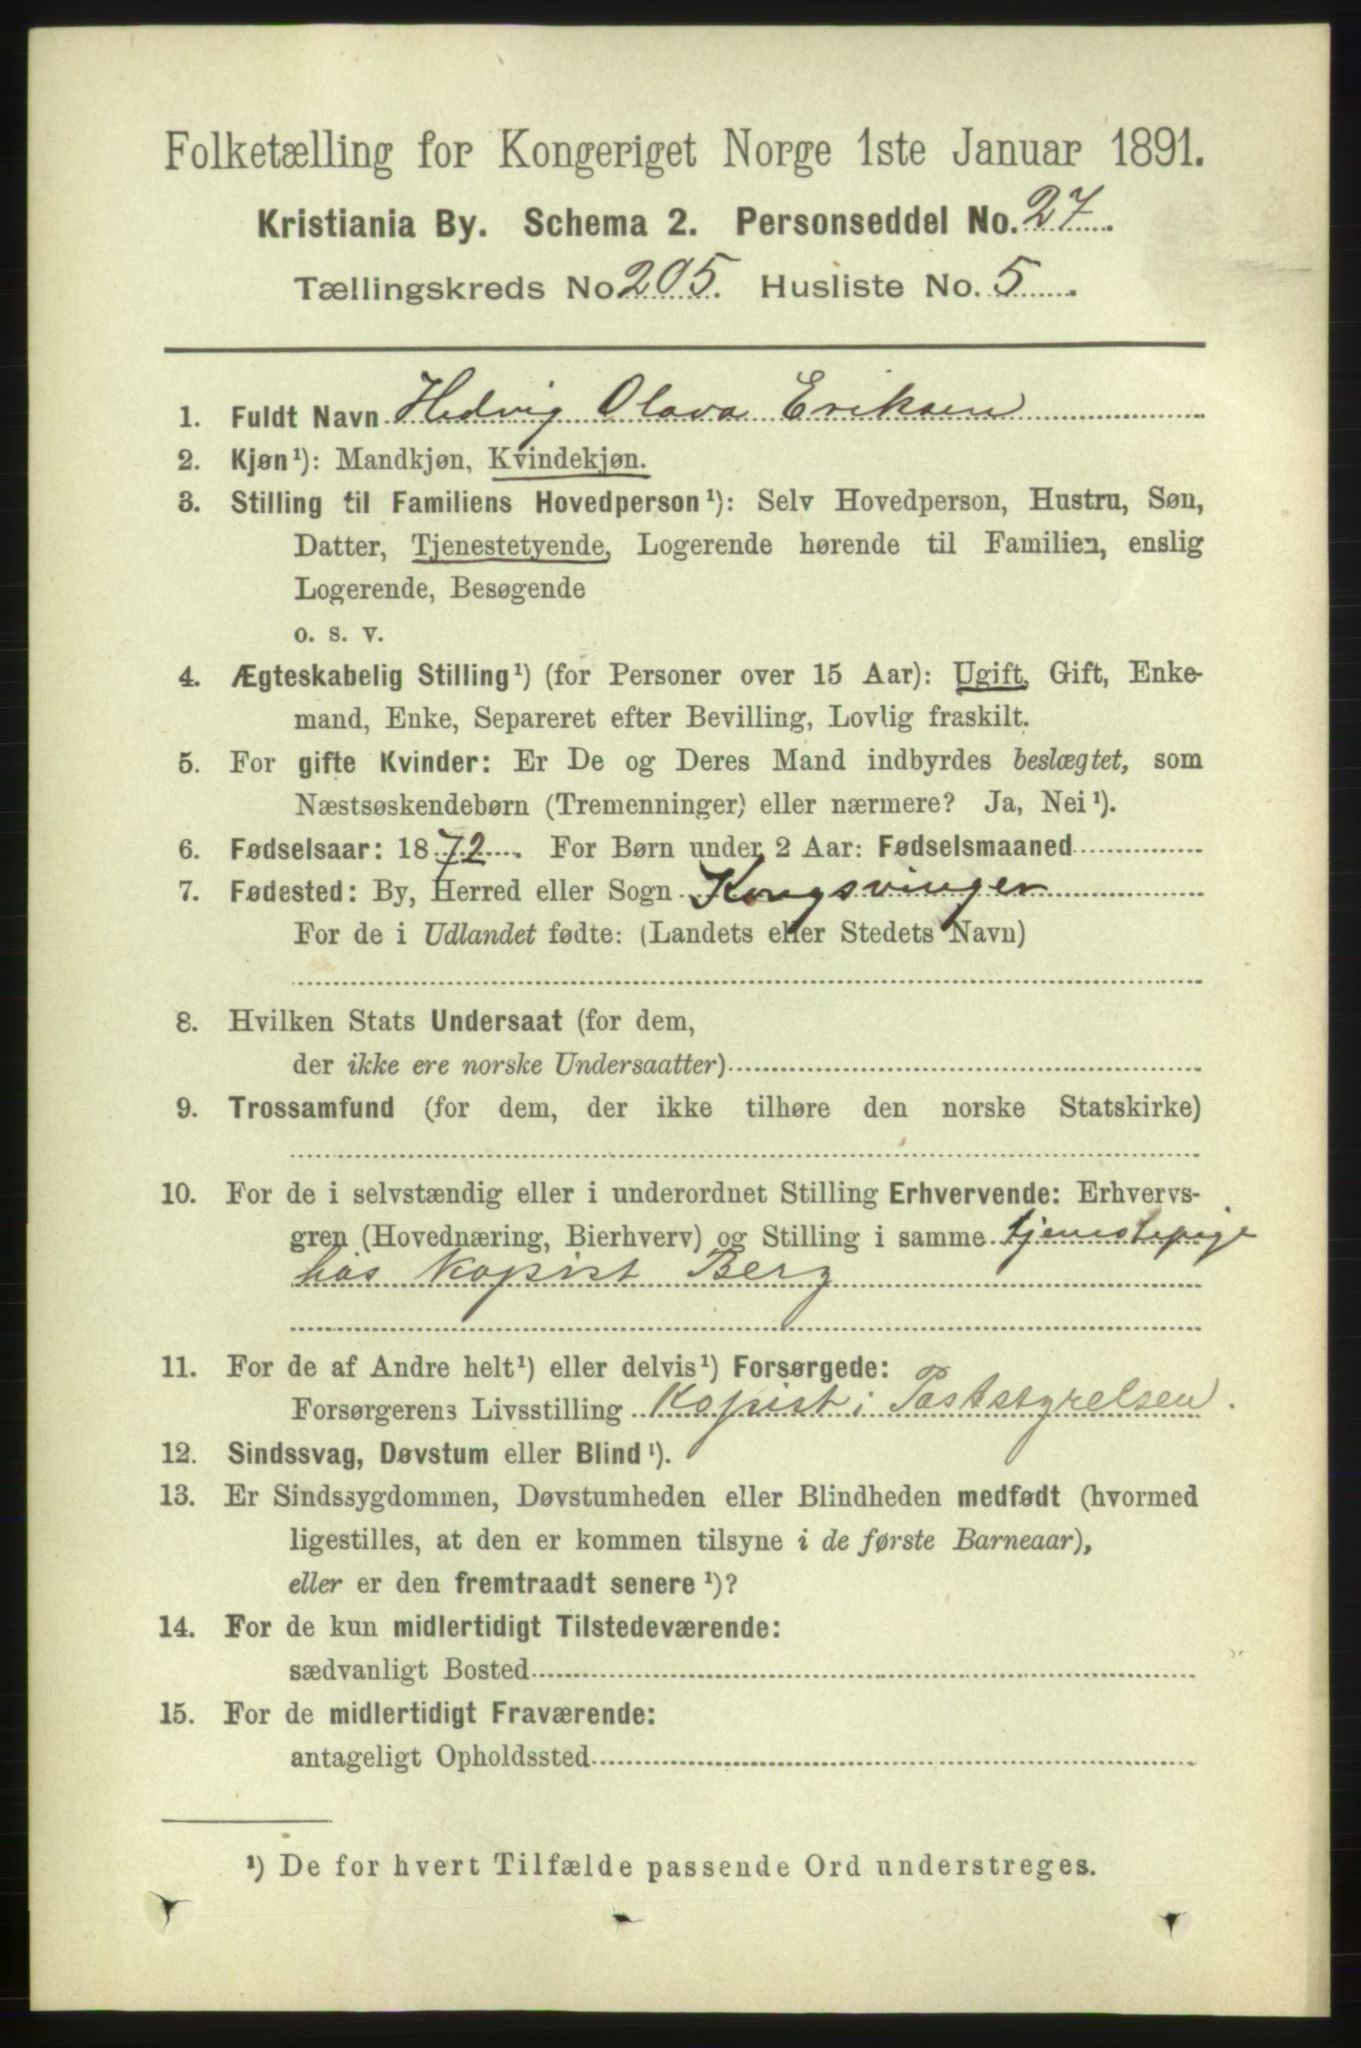 Folketælling for Kongeriget Norge 1ste Januar 1891.
Kristiania By. Schema 2. Personseddel No. 27.
Tællingskreds No 205. Husliste No. 5.
1. Fuldt Navn Hedvig Olava Eriksen
2. Kjøn¹): Mandkjøn, Kvindekjøn.
3. Stilling til Familiens Hovedperson¹): Selv Hovedperson, Hustru, Søn,
Datter, Tjenestetyende, Logerende hørende til Familien, enslig
Logerende, Besøgende
o. s. v.
4. Ægteskabelig Stilling¹) (for Personer over 15 Aar): Ugift, Gift, Enke-
mand, Enke, Separeret efter Bevilling, Lovlig fraskilt.
5. For gifte Kvinder: Er De og Deres Mand indbyrdes beslægtet, som
Næstsøskendebørn (Tremenninger) eller nærmere? Ja, Nei¹).
6. Fødselsaar: 1872. For Børn under 2 Aar: Fødselsmaaned
7. Fødested: By, Herred eller Sogn Kongsvinger
For de i Udlandet fødte: (Landets eller Stedets Navn)
8. Hvilken Stats Undersaat (for dem,
der ikke ere norske Undersaatter)
9. Trossamfund (for dem, der ikke tilhøre den norske Statskirke)
10. For de i selvstændig eller i underordnet Stilling Erhvervende: Erhvervs-
gren (Hovednæring, Bierhverv) og Stilling i samme tjenestepige
hos Kopist Berg
11. For de af Andre helt¹) eller delvis¹) Forsørgede:
Forsørgerens Livsstilling Kopist i Poststyrelsen.
12. Sindssvag, Døvstum eller Blind¹).
13. Er Sindssygdommen, Døvstumheden eller Blindheden medfødt (hvormed
ligestilles, at den er kommen tilsyne i de første Barneaar),
eller er den fremtraadt senere¹)?
14. For de kun midlertidigt Tilstedeværende:
sædvanligt Bosted
15. For de midlertidigt Fraværende:
antageligt Opholdssted
¹) De for hvert Tilfælde passende Ord understreges.